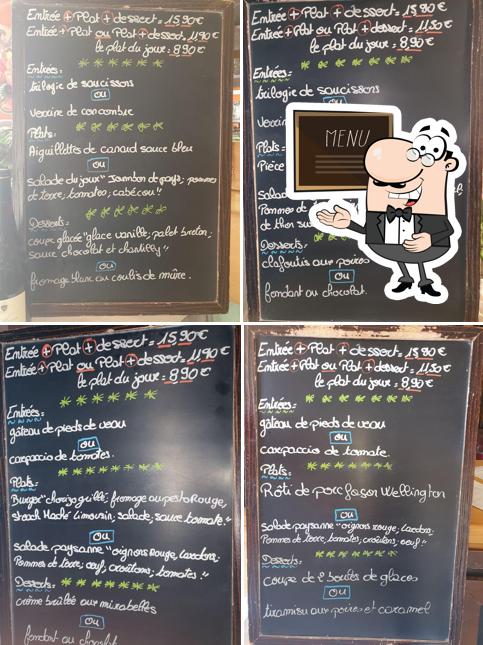 Entrée + Plat + dessert = 15,90€
Entrée + Plat ou Plat + dessert = 11,90€
le plat du jour = 8,90€
Entrées:
trilogie de saucissons
ou
verrine de concombre
Plats:
Aiguillettes de canard sauce bleu
ou
salade du jour "Jambon de pays, pommes
de terre, tomates, cabécou"
Desserts:
coupe glacée "glace vanille, palet breton,
sauce chocolat et chantilly"
ou
fromage blanc au coulis de mûre.
Entrée + Plat + dessert = 15,90€
Entrée + Plat ou Plat + dessert = 11,50€
le plat du jour = 8,90€
Entrées:
trilogie de saucissons
ou
MENU
Plats:
Pièce
ou
Salade
Pommes de
de thon
Desserts:
clafoutis aux poires
ou
fondant au chocolat.
Entrée + Plat + dessert = 15,90€
Entrée + Plat ou Plat + dessert = 11,90€
le plat du jour = 8,90€
Entrées:
gâteau de pieds de veau
ou
carpaccio de tomates.
Plats:
Burger "chorizo grillé, fromage au pesto Rouge,
steack Haché limousin, salade, sauce tomate."
ou
salade paysanne "oignons Rouge, lardons,
Pommes de terre, œuf, croûtons, tomates."
Desserts:
crème brûlée aux mirabelles
ou
fondant au chocolat
Entrée + Plat + dessert = 15,90€
Entrée + Plat ou Plat + dessert = 11,50€
le plat du jour = 8,90€
Entrées:
gâteau de pieds de veau
ou
carpaccio de tomate.
Plats:
Rôti de porc façon Wellington
ou
salade paysanne "oignons rouge, lardons,
Pommes de terre, tomates, croûtons, œuf."
Desserts:
coupe de 2 boules de glaces
ou
tiramisu aux poires et caramel